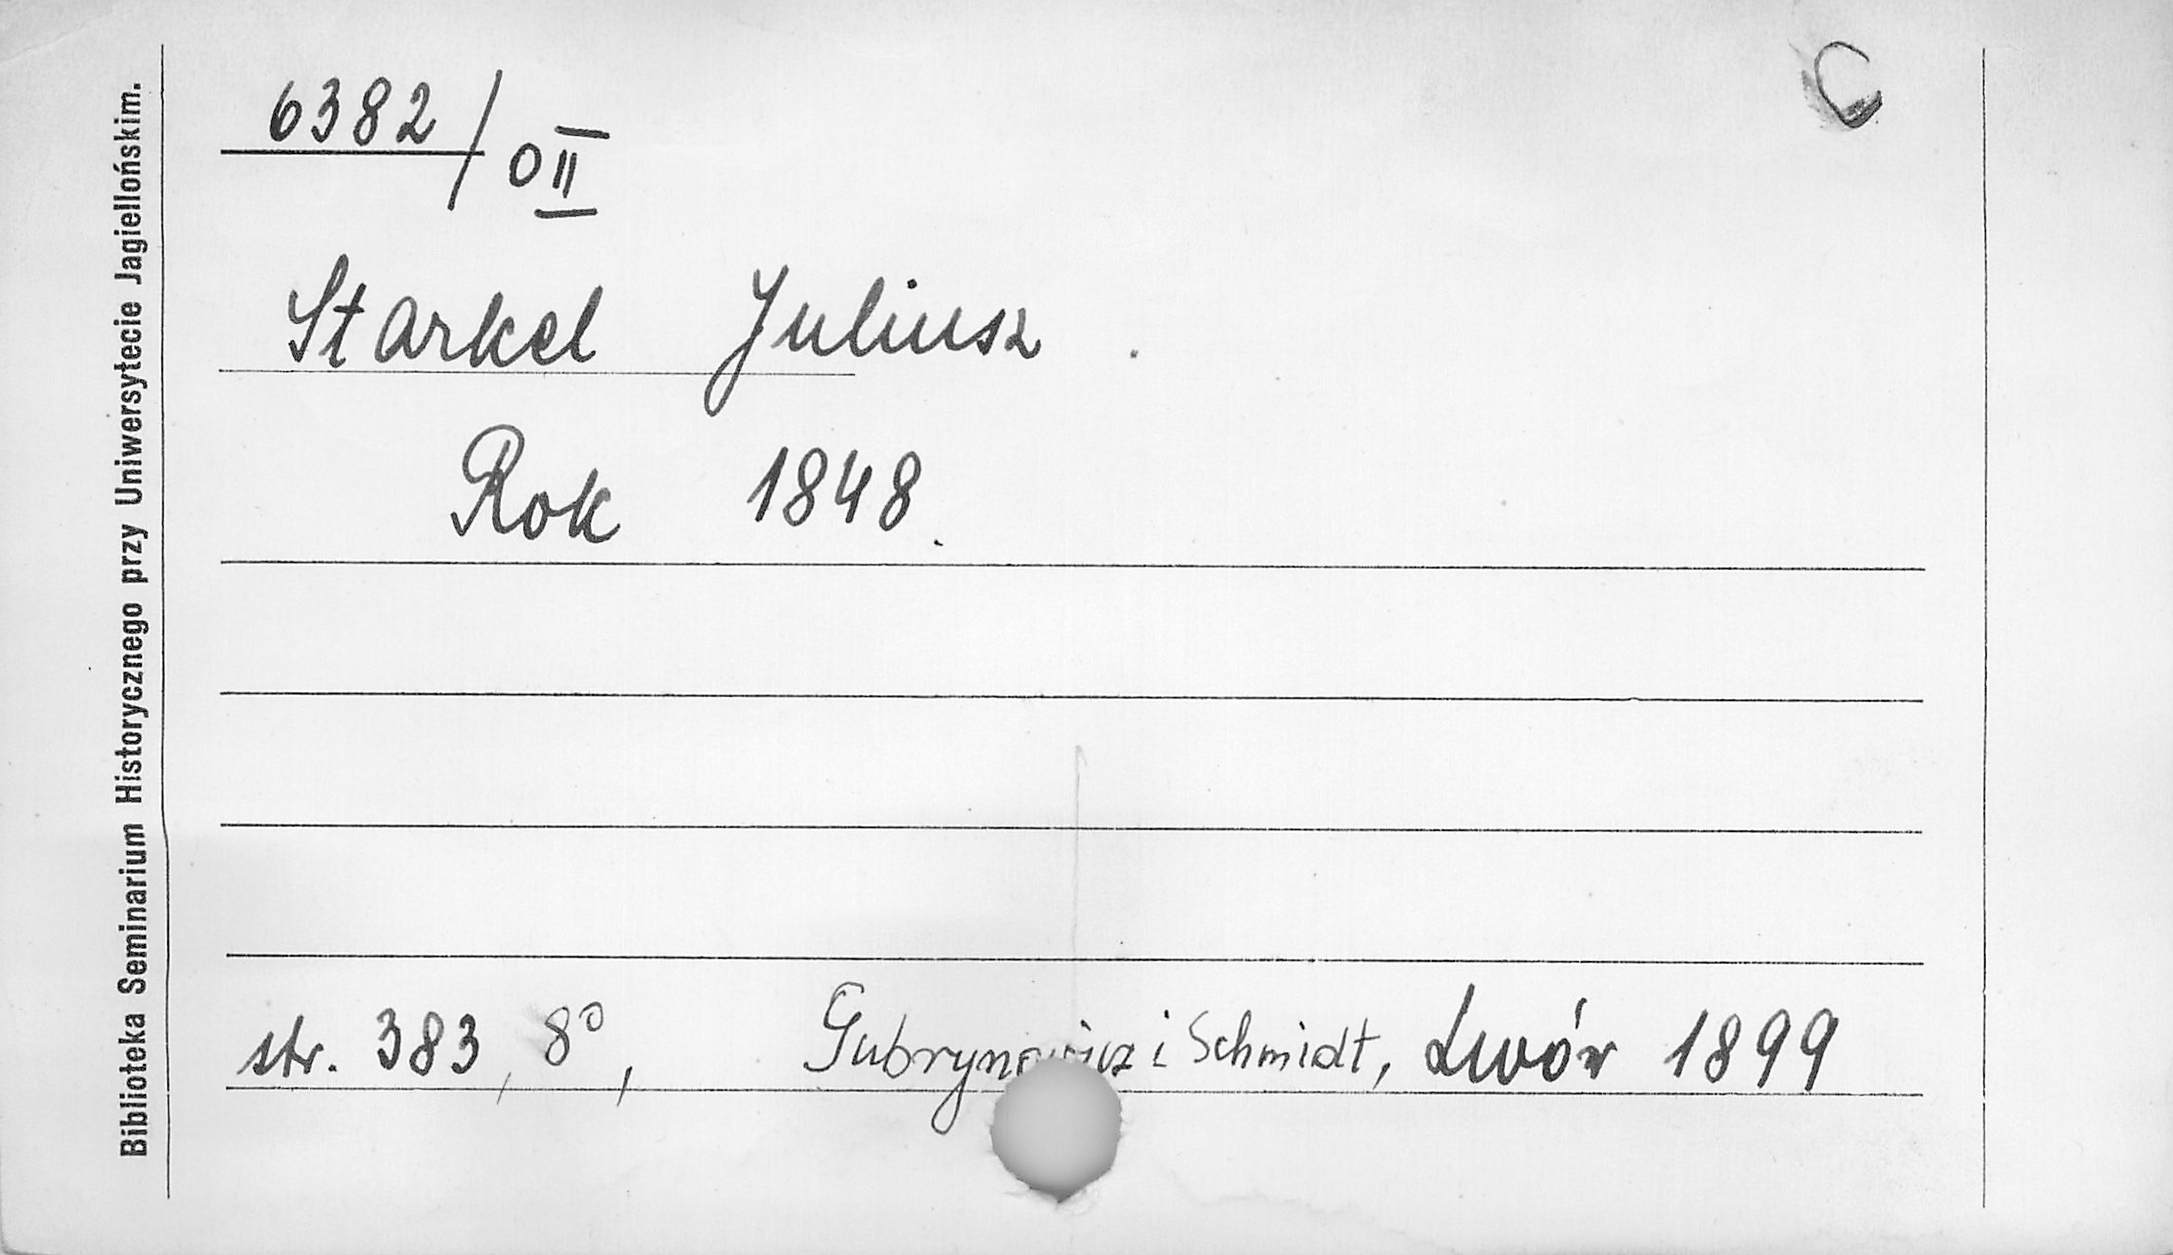 6382/O II
C
Starkel Juliusz.
Rok 1848.
str. 383, 8°, Gubrynowicz i Schmidt, Lwów 1899
Biblioteka Seminarium Historycznego przy Uniwersytecie Jagiellońskim.